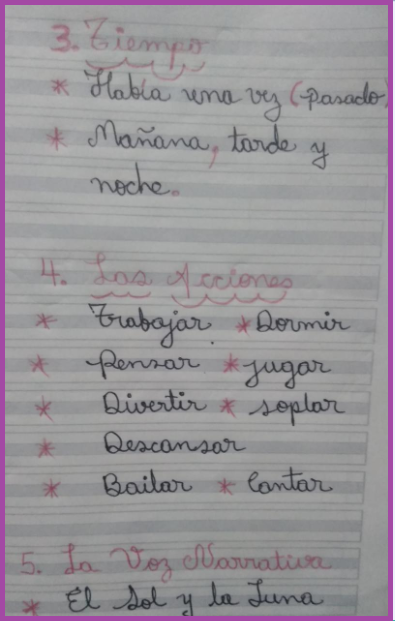 3. Tiempo
* Había una vez (pasado)
* Mañana, tarde y
noche.
4. Las Acciones
* Trabajar * Dormir
* Pensar * jugar
* Divertir * soplar
* Descansar
* Bailar * Cantar
5. La Voz Narrativa
* El Sol y la Luna